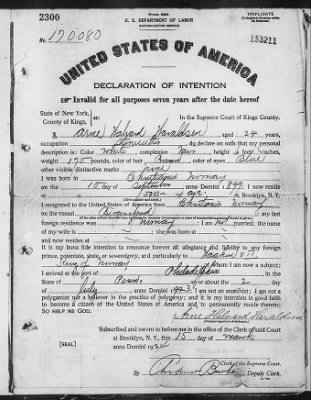 2300
U. S. DEPARTMENT OF LABOR
TRIPLICATE
No. 120080
153211
UNITED STATES OF AMERICA
DECLARATION OF INTENTION
Invalid for all purposes seven years after the date hereof
State of New York, County of Kings, ss: In the Supreme Court of Kings County.
I, Arne Halvard Haraldsen aged 24 years,
occupation do declare on oath that my personal
description is: Color White, complexion Fair, height 6 feet inches,
weight 170 pounds, color of hair Brown, color of eyes Blue
other visible distinctive marks none
I was born in Christiania Norway
on the 10 day of September, anno Domini 1899; I now reside
at Brooklyn, N. Y.
I emigrated to the United States of America from Christiania Norway
on the vessel my last
foreign residence was Norway I am not married; the name
of my wife is
and now resides at
It is my bona fide intention to renounce forever all allegiance and fidelity to any foreign
prince, potentate, state, or sovereignty, and particularly to Haakon VII
King of Norway of whom I am now a subject;
I arrived at the port of Philadelphia in the
State of Penn, on or about the 2 day
of July, anno Domini 1923; I am not an anarchist; I am not a
polygamist nor a believer in the practice of polygamy; and it is my intention in good faith
to become a citizen of the United States of America and to permanently reside therein:
SO HELP ME GOD.
Arne Halvard Haraldsen
Subscribed and sworn to before me in the office of the Clerk of said Court
at Brooklyn, N. Y., this 15 day of March
[SEAL] anno Domini 1924
Clerk of the Supreme Court.
By Deputy Clerk.